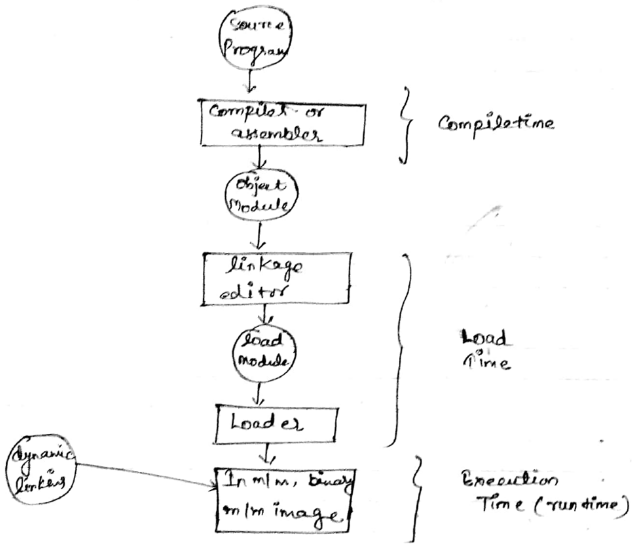 Source
Program
Compiler or
assembler
Compiletime
Object
Module
linkage
editor
load
module
Load
Time
Loader
dynamic
linking
In m/m, binary
m/m image
Execution
Time (runtime)